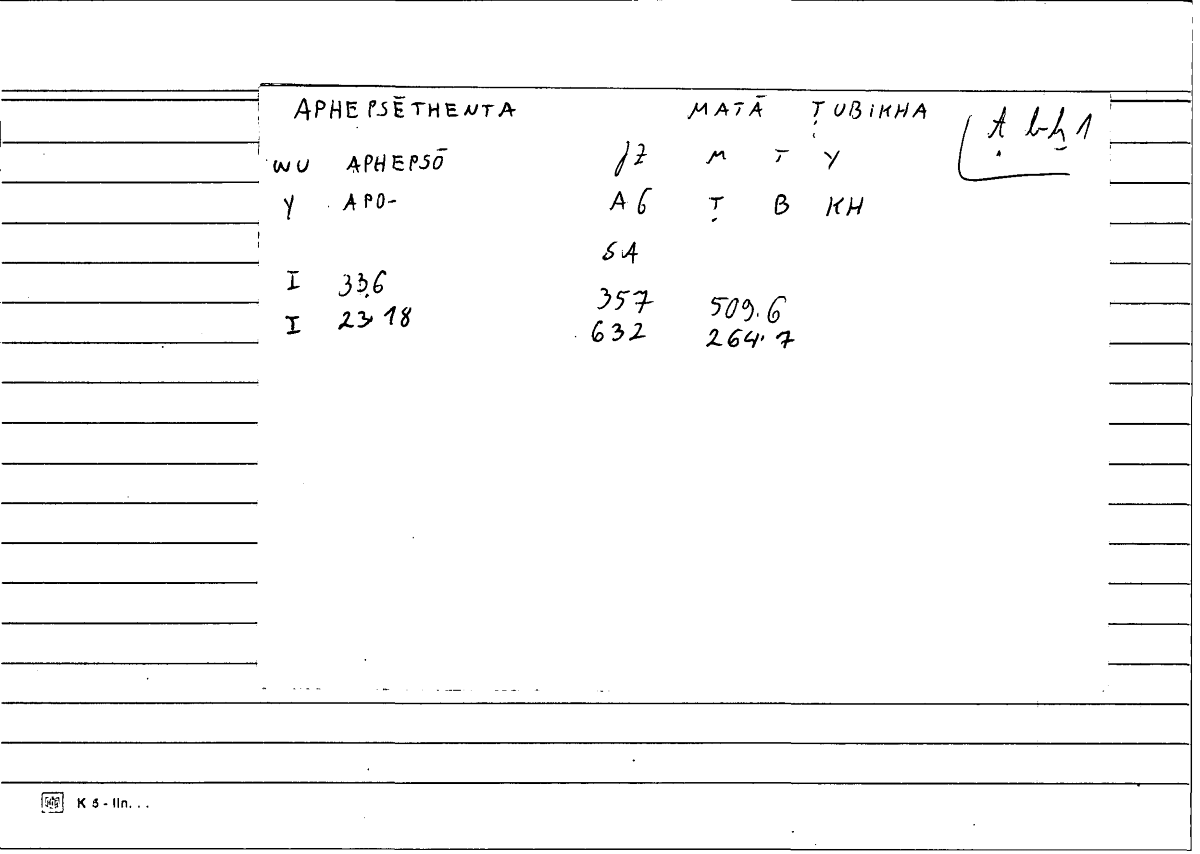 APHEPSĒTHENTA MATĀ ṬUBIKHA
Ṭ b-ḫ 1
WU APHEPSŌ JZ M T Y
Y APO- AG Ṭ B KH
SA
I 33.6 357 509.6
I 23.18 632 264.7
K 5 - lln. . .